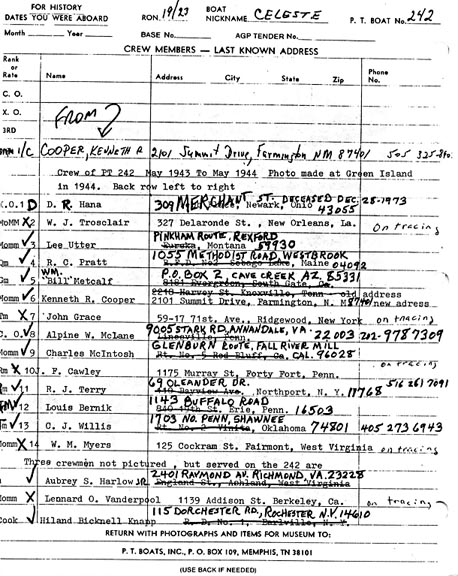 FOR HISTORY
DATES YOU WERE ABOARD RON. 19/23 BOAT NICKNAME CELESTE P. T. BOAT No. 242
Month Year BASE No. AGP TENDER No.
CREW MEMBERS — LAST KNOWN ADDRESS
Rank or Rate Name Address City State Zip Phone No.
C. O.
X. O. FROM?
3RD
1/C COOPER, KENNETH R 2101 Summit Drive, Farmington NM 87401 505 325-
Crew of PT 242 May 1943 To May 1944 Photo made at Green Island
in 1944. Back row left to right
X.O. 1 D D. R. Hana 309 MERCHANT ST. DECEASED DEC. 28-1973
Newark, Ohio 43055
MoMM X 2 W. J. Trosclair 327 Delaronde St., New Orleans, La. on tracing
PINKHAM ROUTE, REXFORD
Momm ✓ 3 Lee Utter Eureka, Montana 59930
1055 METHODIST ROAD, WESTBROOK
Qm ✓ 4 R. C. Pratt R.F.D. No2 Sebago Lake, Maine 04092
WM. P.O. BOX 2, CAVE CREEK AZ. 85331
Gm ✓ 5 "Bill" Metcalf 8181 Evergreen, South Gate, Ca.
2218 Harvey St. Knoxville, Tenn old address
Momm ✓ 6 Kenneth R. Cooper 2101 Summit Drive, Farmington, N. M 87401 new adress
Tm X 7 John Grace 59-17 71st. Ave., Ridgewood, New York on tracing
9005 STARK RD, ANNANDALE, VA. 22003 202-9787309
C. O. ✓ 8 Alpine W. McLane Lincolnville, Penn.
GLENBURN ROUTE, FALL RIVER MILL
Momm ✓ 9 Charles McIntosh Rt. No. 5 Red Bluff, Ca. CAL. 96028
Rm X 10 J. F. Cawley 1175 Murray St, Forty Fort, Penn. on tracing
69 OLEANDER DR. 516 261 7091
✓ 11 R. J. Terry 440 Bayview Ave. Northport, N. Y. 11768
1143 BUFFALO ROAD
✓ 12 Louis Bernik 840 17th St. Erie, Penn. 16503
1703 NO. PENN, SHAWNEE
Tm ✓ 13 C. J. Willis Rt. No. 2 Vinita, Oklahoma 74801 405 273 6943
Momm X 14 W. M. Myers 125 Cockram St. Fairmont, West Virginia on tracing
Three crewmen not pictured, but served on the 242 are
2401 RAYMOND AV. RICHMOND VA. 23228
✓ Aubrey S. Harlow JR. England St., Ashland, West Virginia
Momm X Lennard O. Vanderpool 1139 Addison St. Berkeley, Ca. on tracing
115 DORCHESTER RD, ROCHESTER N.Y. 14610
Cook ✓ Hiland Bicknell Knapp R. D. No. 1, Earlville, N. Y.
RETURN WITH PHOTOGRAPHS AND ITEMS FOR MUSEUM TO:
P. T. BOATS, INC., P. O. BOX 109, MEMPHIS, TN 38101
(USE BACK IF NEEDED)